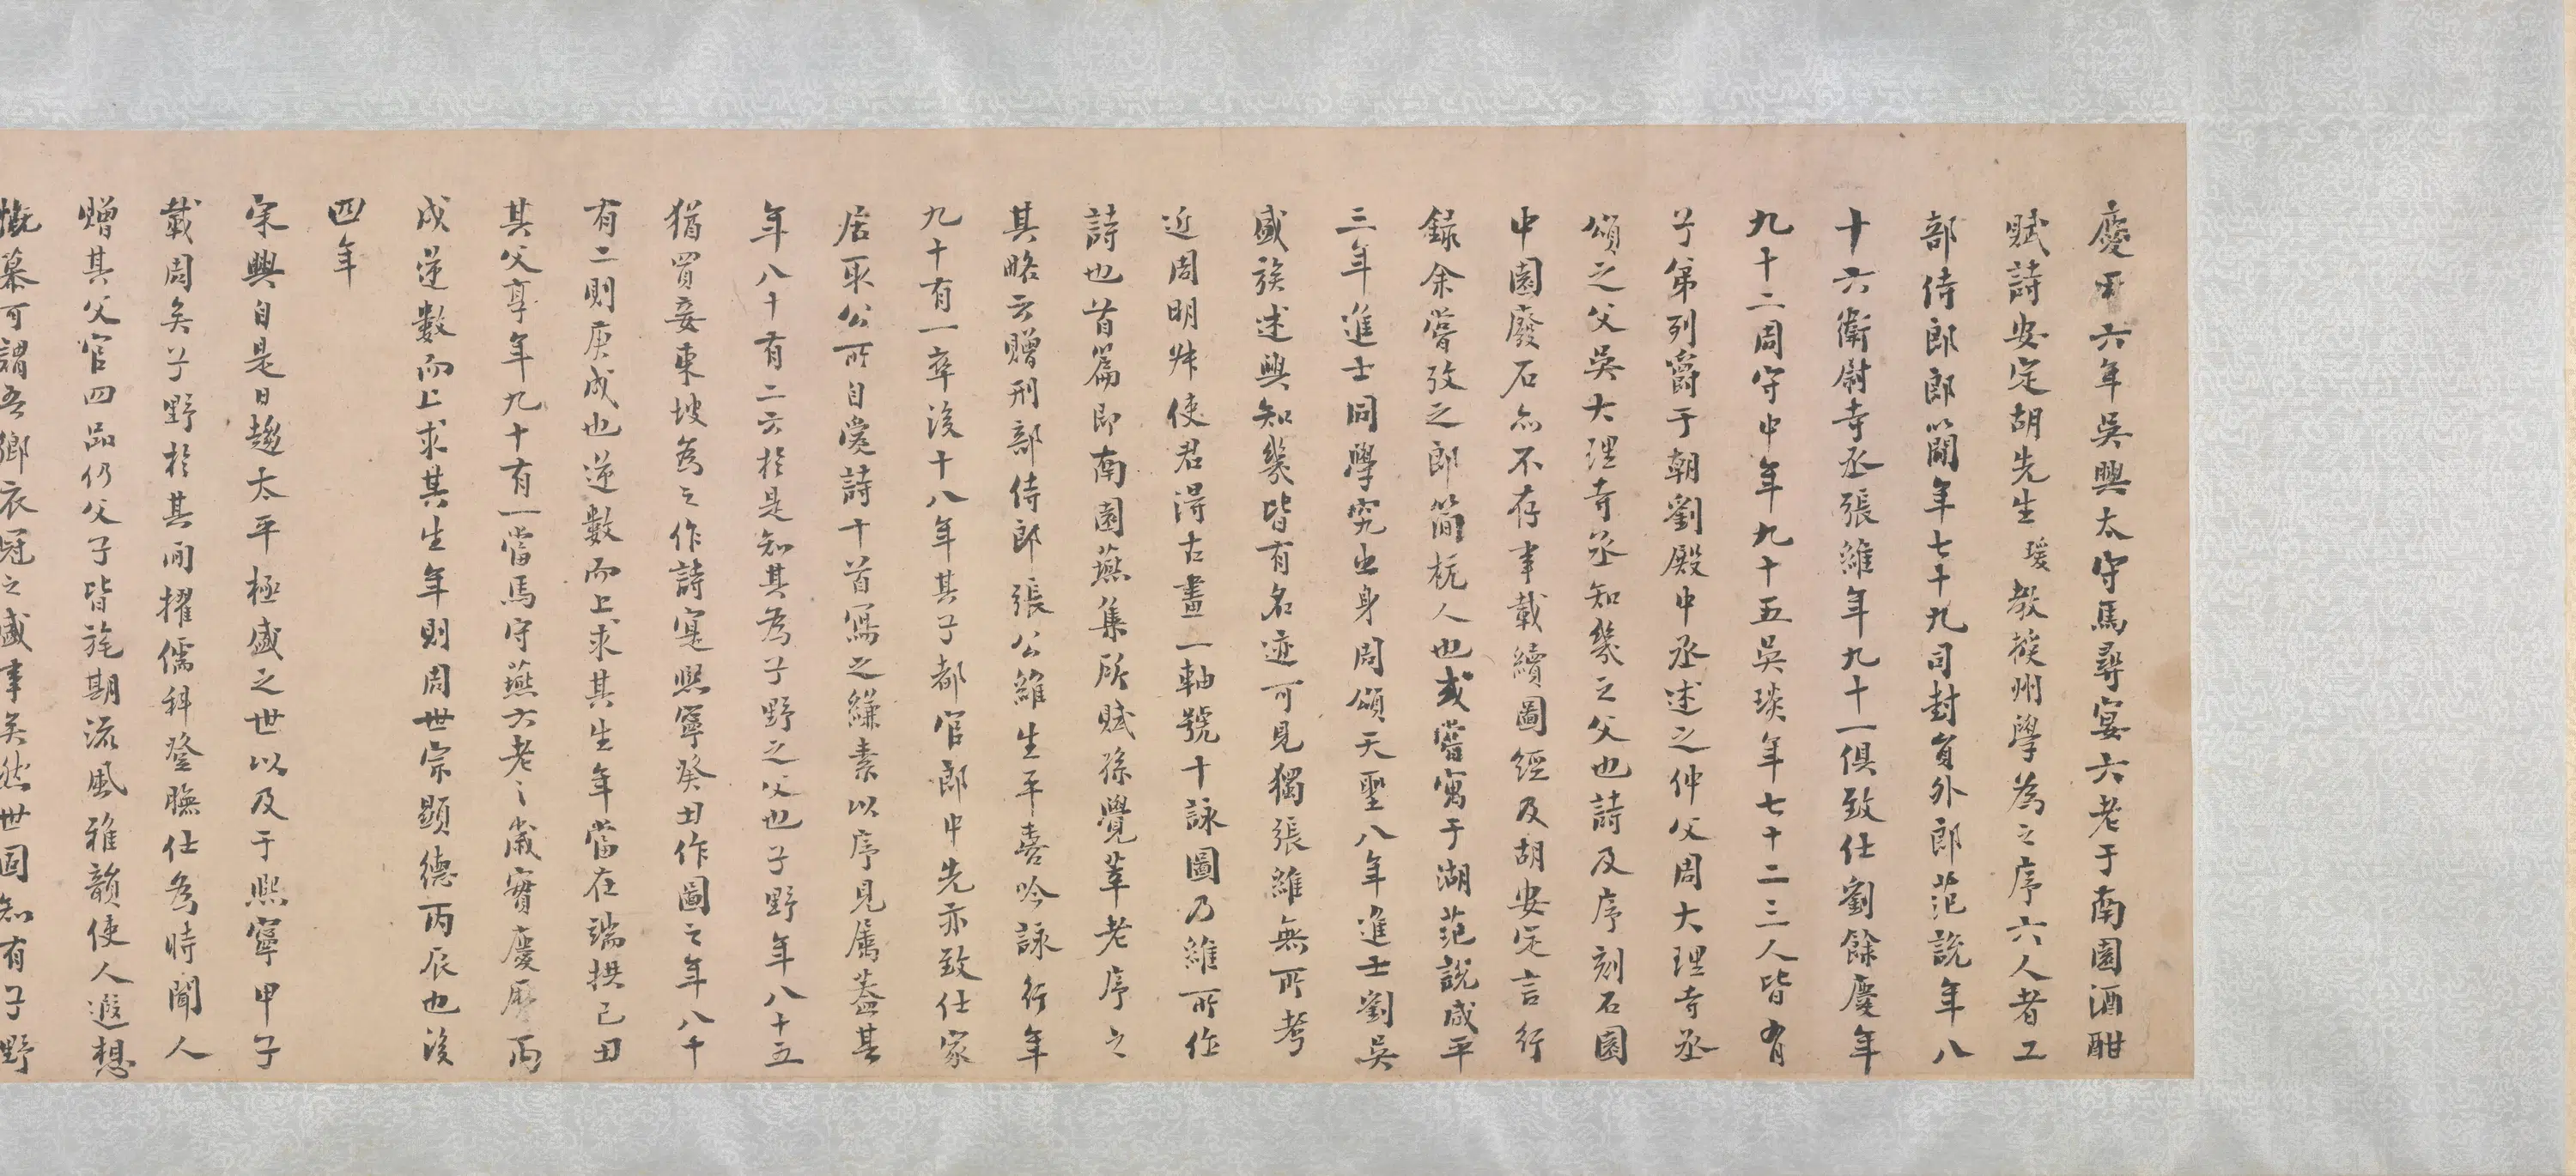 慶曆六年吳興太守馬尋宴六老于南園酒酣
賦詩安定胡先生瑗教授州學為之序六人者工
部侍郎郎簡年七十九司封員外郎范說年八
十六衛尉寺丞張維年九十一俱致仕劉餘慶年
九十二周守中年九十五吳琰年七十二三人皆有
子弟列爵于朝劉殿中丞述之仲父周大理寺丞
頌之父吳大理寺丞知幾之父也詩及序刻石園
中園廢石亦不存事載續圖經及胡安定言行
錄余嘗攷之郎簡杭人也或嘗寓于湖范說咸平
三年進士同學究出身周頌天聖八年進士劉吳
盛族述與知幾皆有名迹可見獨張維無所考
近周明叔使君得古畫一軸號十詠圖乃維所作
詩也首篇即南園燕集所賦孫覺莘老序之
其略云贈刑部侍郎張公維生平喜吟詠行年
九十有一卒後十八年其子都官郎中先亦致仕家
居取公所自愛詩十首寫之縑素以序見屬蓋其
年八十有二云於是知其為子野之父也子野年八十五
猶買妾東坡為之作詩寔熙寧癸丑作圖之年八十
有二則庚戌也逆數而上求其生年當在端拱己丑
其父享年九十有一當馬守燕六老之歲實慶曆丙
戌逆數而上求其生年則周世宗顯德丙辰也後
四年
宋興自是日趨太平極盛之世以及于熙寧甲子
載周矣子野於其間擢儒科登膴仕為時聞人
贈其父官四品仍父子皆旄期流風雅韻使人遐想
慨慕可謂吾鄉衣冠之盛事矣然世固知有子野